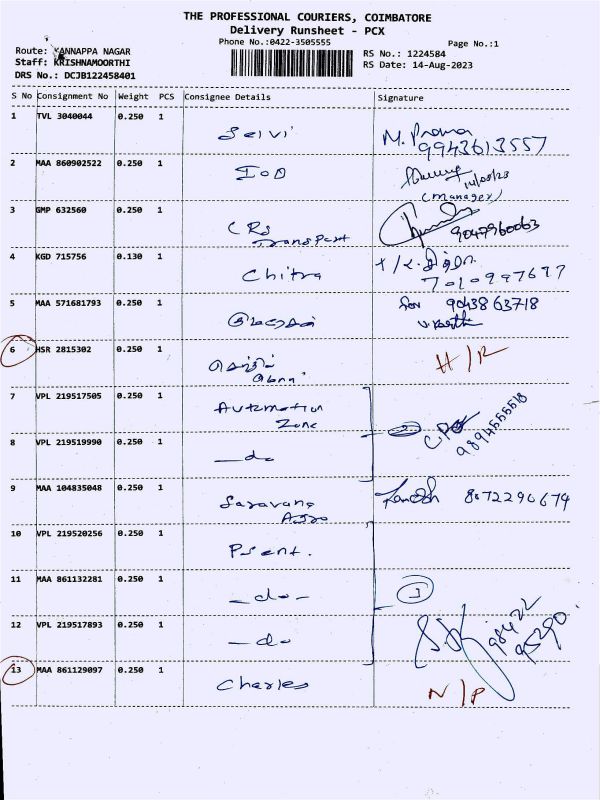 THE PROFESSIONAL COURIERS, COIMBATORE
Delivery Runsheet - PCX
Phone No.:0422-3505555
Page No.:1
Route: KANNAPPA NAGAR
Staff: KRISHNAMOORTHI
DRS No.: DCJB122458401
RS No.: 1224584
RS Date: 14-Aug-2023
S No Consignment No Weight PCS Consignee Details Signature
1 TVL 3040044 0.250 1 Selvi M. Prema
9943613557
2 MAA 860902522 0.250 1 IOB 14/08/23
(Manager)
3 GMP 632560 0.250 1 CRS 9047960063
Transport
4 KGD 715756 0.130 1 Chitra
7010997677
5 MAA 571681793 0.250 1 9043863718
6 HSR 2815302 0.250 1 H/R
7 VPL 219517505 0.250 1 Automation
Zone
8 VPL 219519990 0.250 1 -do 9894555518
9 MAA 104835048 0.250 1 Saravana 8072290674
Agro
10 VPL 219520256 0.250 1
11 MAA 861132281 0.250 1 -do- 3
12 VPL 219517893 0.250 1 -do 98422
95290
13 MAA 861129097 0.250 1 Charles N/P